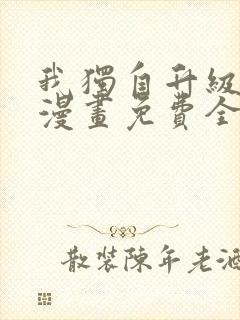 我獨自升級
漫畫免費全
散裝陳年老酒